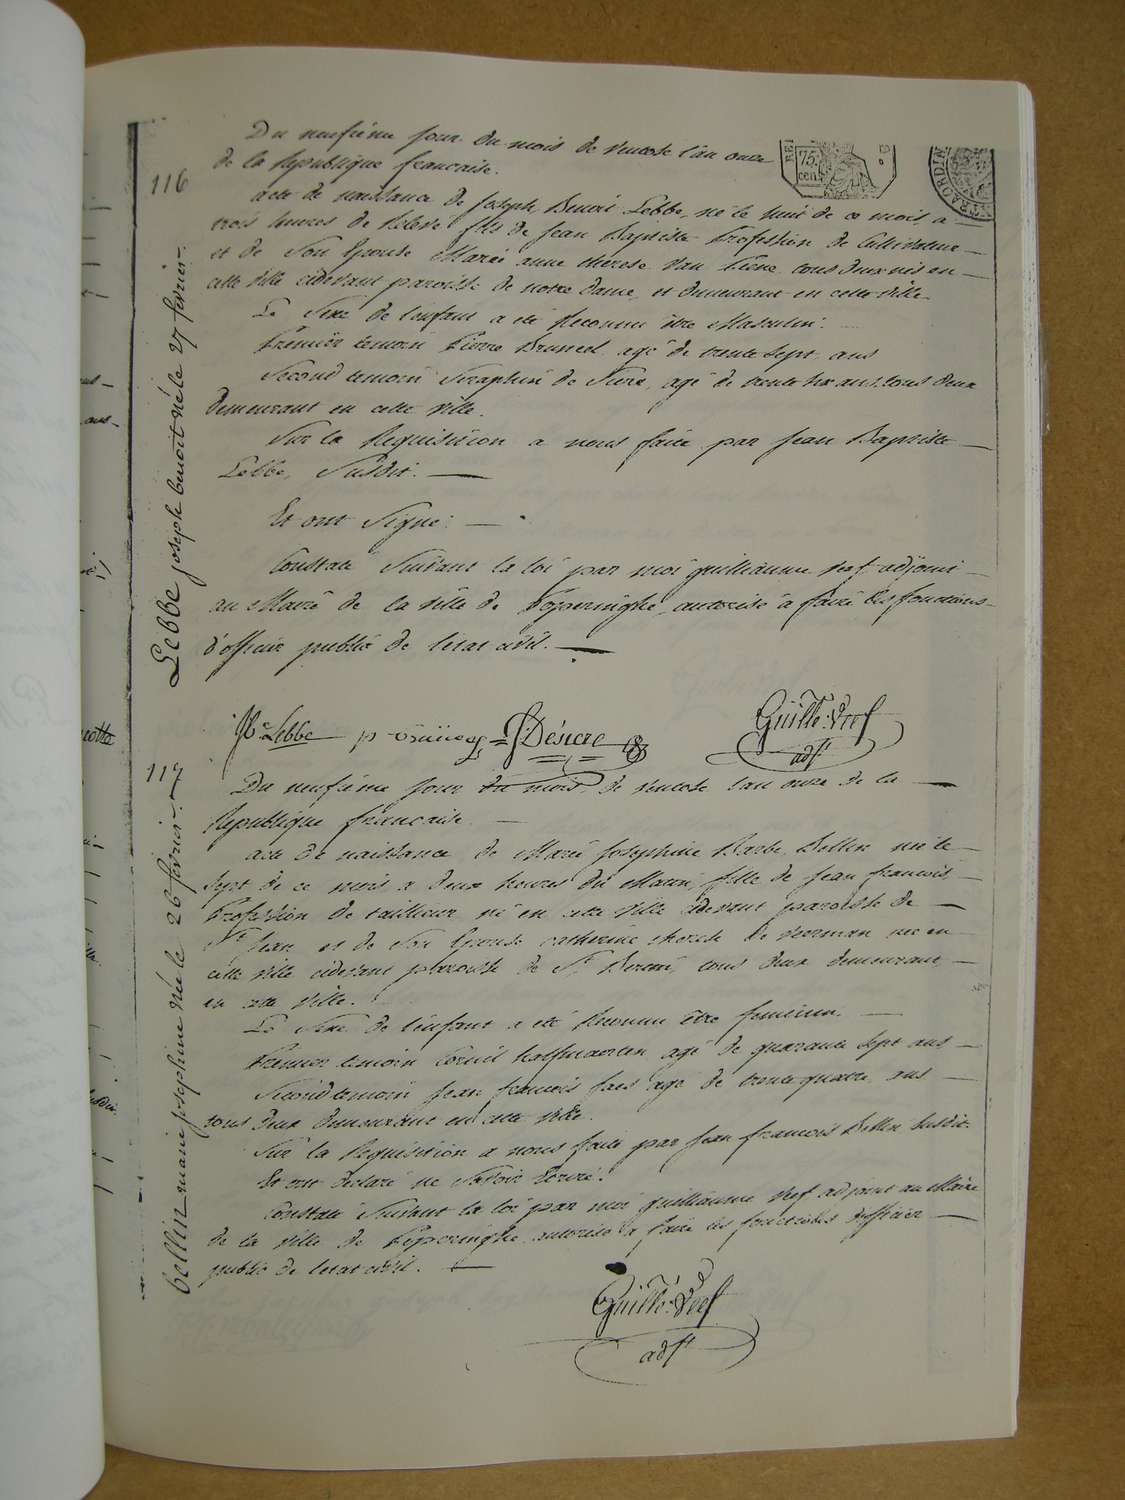 116
Du neufième jour du mois de ventose l'an onze
de la Republique française.
75.
cen
TRAORDIN
acte de naissance de Joseph Benoit Lebbe, né le huit de ce mois a
trois heures de Relevé fils de Jean Baptiste Profession de Cultivateur
et de Son Epouse Marie anne therese Van tous deux nés en
cette ville cidevant paroisse de notre dame, et demeurant en cette ville
Le Sexe de l'enfant a été Reconnu être Masculin.
Premier temoin Pierre Bruneel agé de trente Sept ans
Second temoin Seraphin de agé de trente six ans tous deux
demeurant en cette ville.
Sur la Requisition a nous faite par Jean Baptiste
Lebbe, Susdit.
Et ont Signé:
Constaté Suivant la loi par moi guilliaume Vef adjoint
au Maire de la ville de Poperinghe, autorisé a faire les fonctions
d'officier public de l'etat civil.
Lebbe joseph benoit né le 27 février.
Lebbe
Guille. Veef
adjt
117
Du neufième jour du mois de ventose l'an onze de la
Republique française.
acte de naissance de Marie Josephine Barbe Bellin née le
Sept de ce mois a deux heures du Matin, fille de Jean francois,
Profession de tailleur né en cette ville cidevant paroisse de
St Jean et de Son Epouse catherine therese de née en
cette ville cidevant paroisse de St tous deux demeurant
en cette ville.
Le Sexe de l'enfant a été Reconnu être feminin.
Premier temoin Corneil agé de quarante Sept ans
Second temoin Jean francois faes agé de trente quatre ans
tous deux demeurant en cette ville.
Sur la Requisition a nous faite par Jean francois Bellin Susdit.
Et ont declaré ne Savoir Ecrire.
Constaté Suivant la loi par moi guilliaume Vef adjoint au Maire
de la ville de Poperinghe autorisé a faire les fonctions d'officier
public de l'etat civil.
bellin marie josephine née le 26 février.
Guille. Veef
adjt